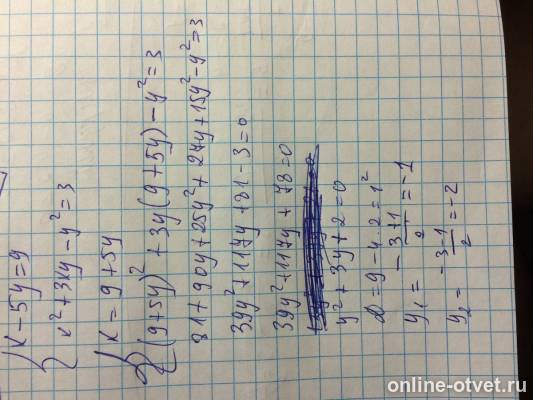 { x - 5y = 9
x² + 3xy - y² = 3
{ x = 9 + 5y
(9+5y)² + 3y(9+5y) - y² = 3
81 + 90y + 25y² + 27y + 15y² - y² = 3
39y² + 117y + 81 - 3 = 0
39y² + 117y + 78 = 0
y² + 3y + 2 = 0
D = 9 - 4·2 = 1²
y₁ = -3+1/2 = -1
y₂ = -3-1/2 = -2
online-otvet.ru